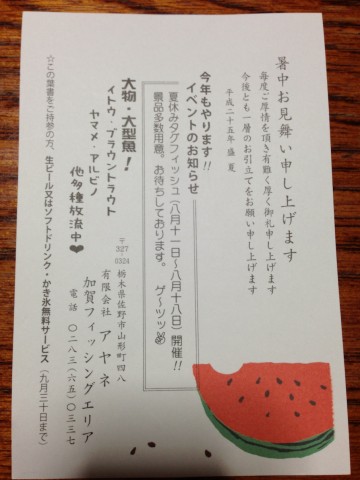 暑中お見舞い申し上げます
毎度ご厚情を頂き有難く厚く御礼申し上げます
今後とも一層のお引立てをお願い申し上げます
平成二十五年 盛夏
今年もやります!!
イベントのお知らせ
夏休みタグフィッシュ(八月十一日〜八月十八日)開催!!
景品多数用意。お待ちしております。 ゲ〜ッツ✌
大物・大型魚!
イトウ・ブラウントラウト
ヤマメ・アルビノ
他多種放流中♥
〒327
0324
栃木県佐野市山形町四八
有限会社 アヤネ
加賀フィッシングエリア
電話 〇二八三(六五)〇三三七
☆この葉書をご持参の方、生ビール又はソフトドリンク・かき氷無料サービス(九月三十日まで)